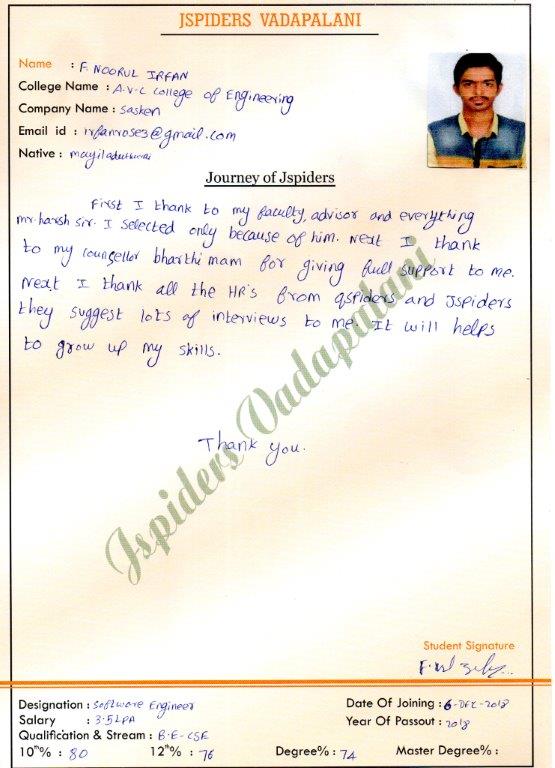 JSPIDERS VADAPALANI
Name : F. NOORUL IRFAN
College Name : A.V.C College of Engineering
Company Name : Sasken
Email id : irfanrose3@gmail.com
Native : mayiladuthurai
Journey of Jspiders
First I thank to my faculty, advisor and everything
mr.harsh sir. I selected only because of him. Next I thank
to my counsellor bharthi mam for giving full support to me.
Next I thank all the HR's from qspiders and Jspiders
they suggest lots of interviews to me. It will helps
to grow up my skills.
Thank you.
Jspiders Vadapalani
Student Signature
Designation : Software Engineer
Salary : 3.5LPA
Qualification & Stream : B.E-CSE
10th% : 80 12th% : 76 Degree% : 74 Master Degree% :
Date Of Joining : 6-DEC-2018
Year Of Passout : 2018